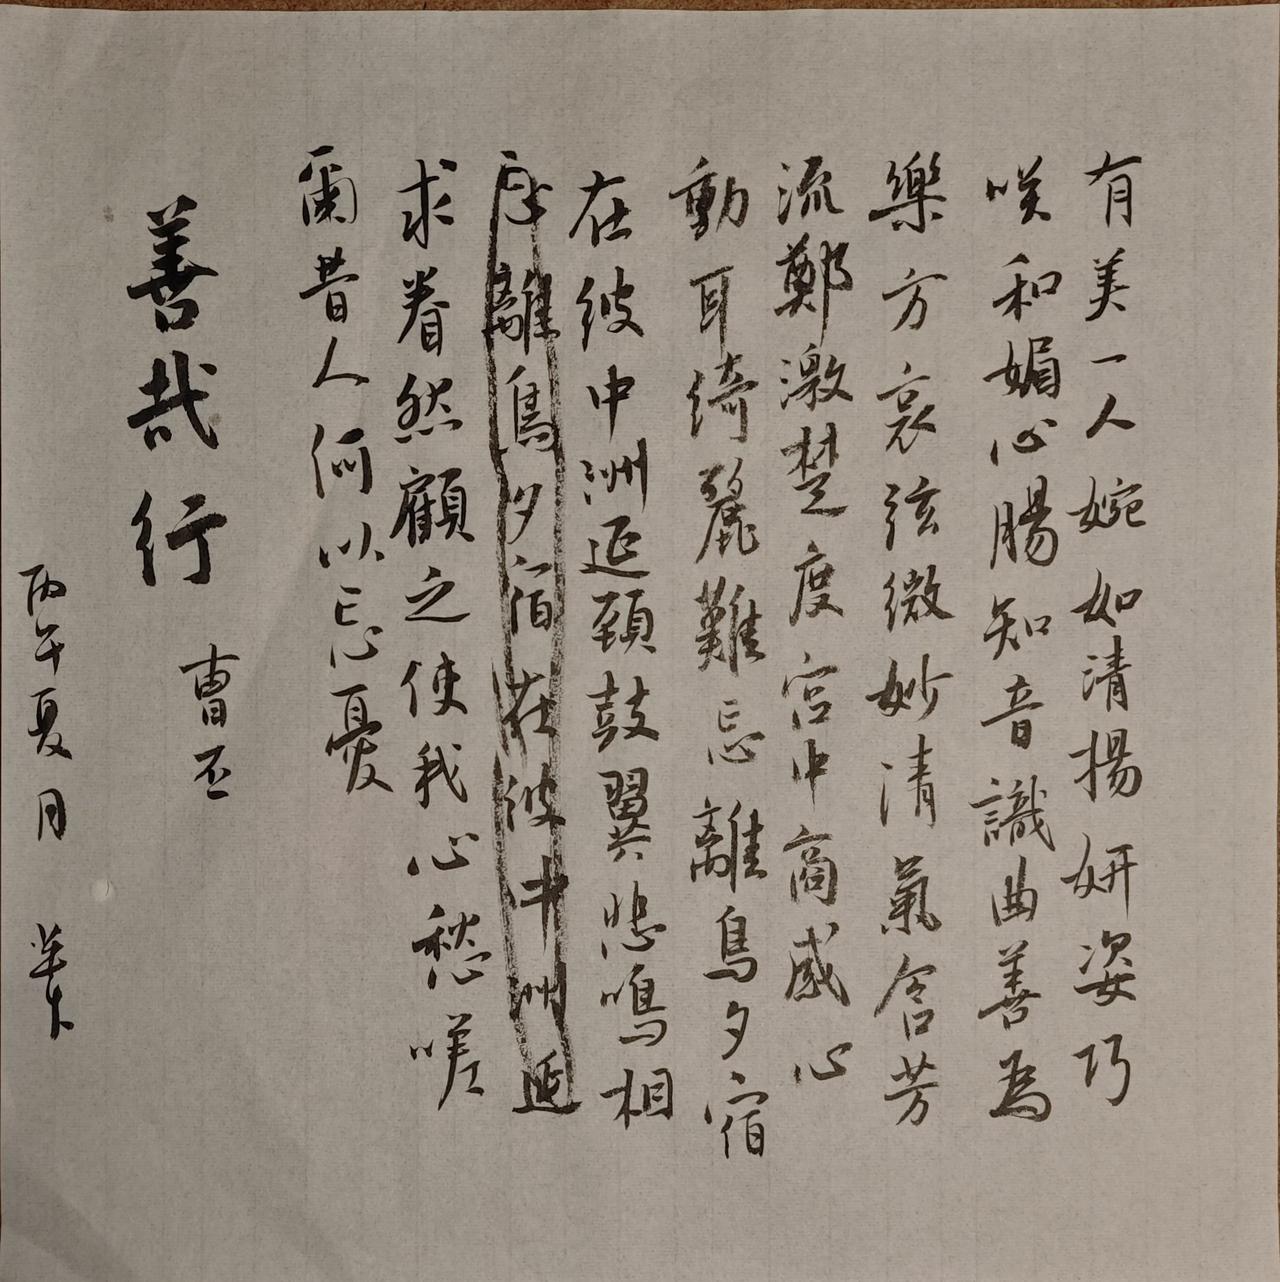 有美一人婉如清揚妍姿巧
咲和媚心腸知音識曲善為
樂方哀弦微妙清氣含芳
流鄭激楚度宮中商感心
動耳綺麗難忘離鳥夕宿
在彼中洲延頸鼓翼悲鳴相
離鳥夕宿在彼中洲延
求眷然顧之使我心愁嗟
爾昔人何以忘憂
善哉行
曹丕
丙午夏月